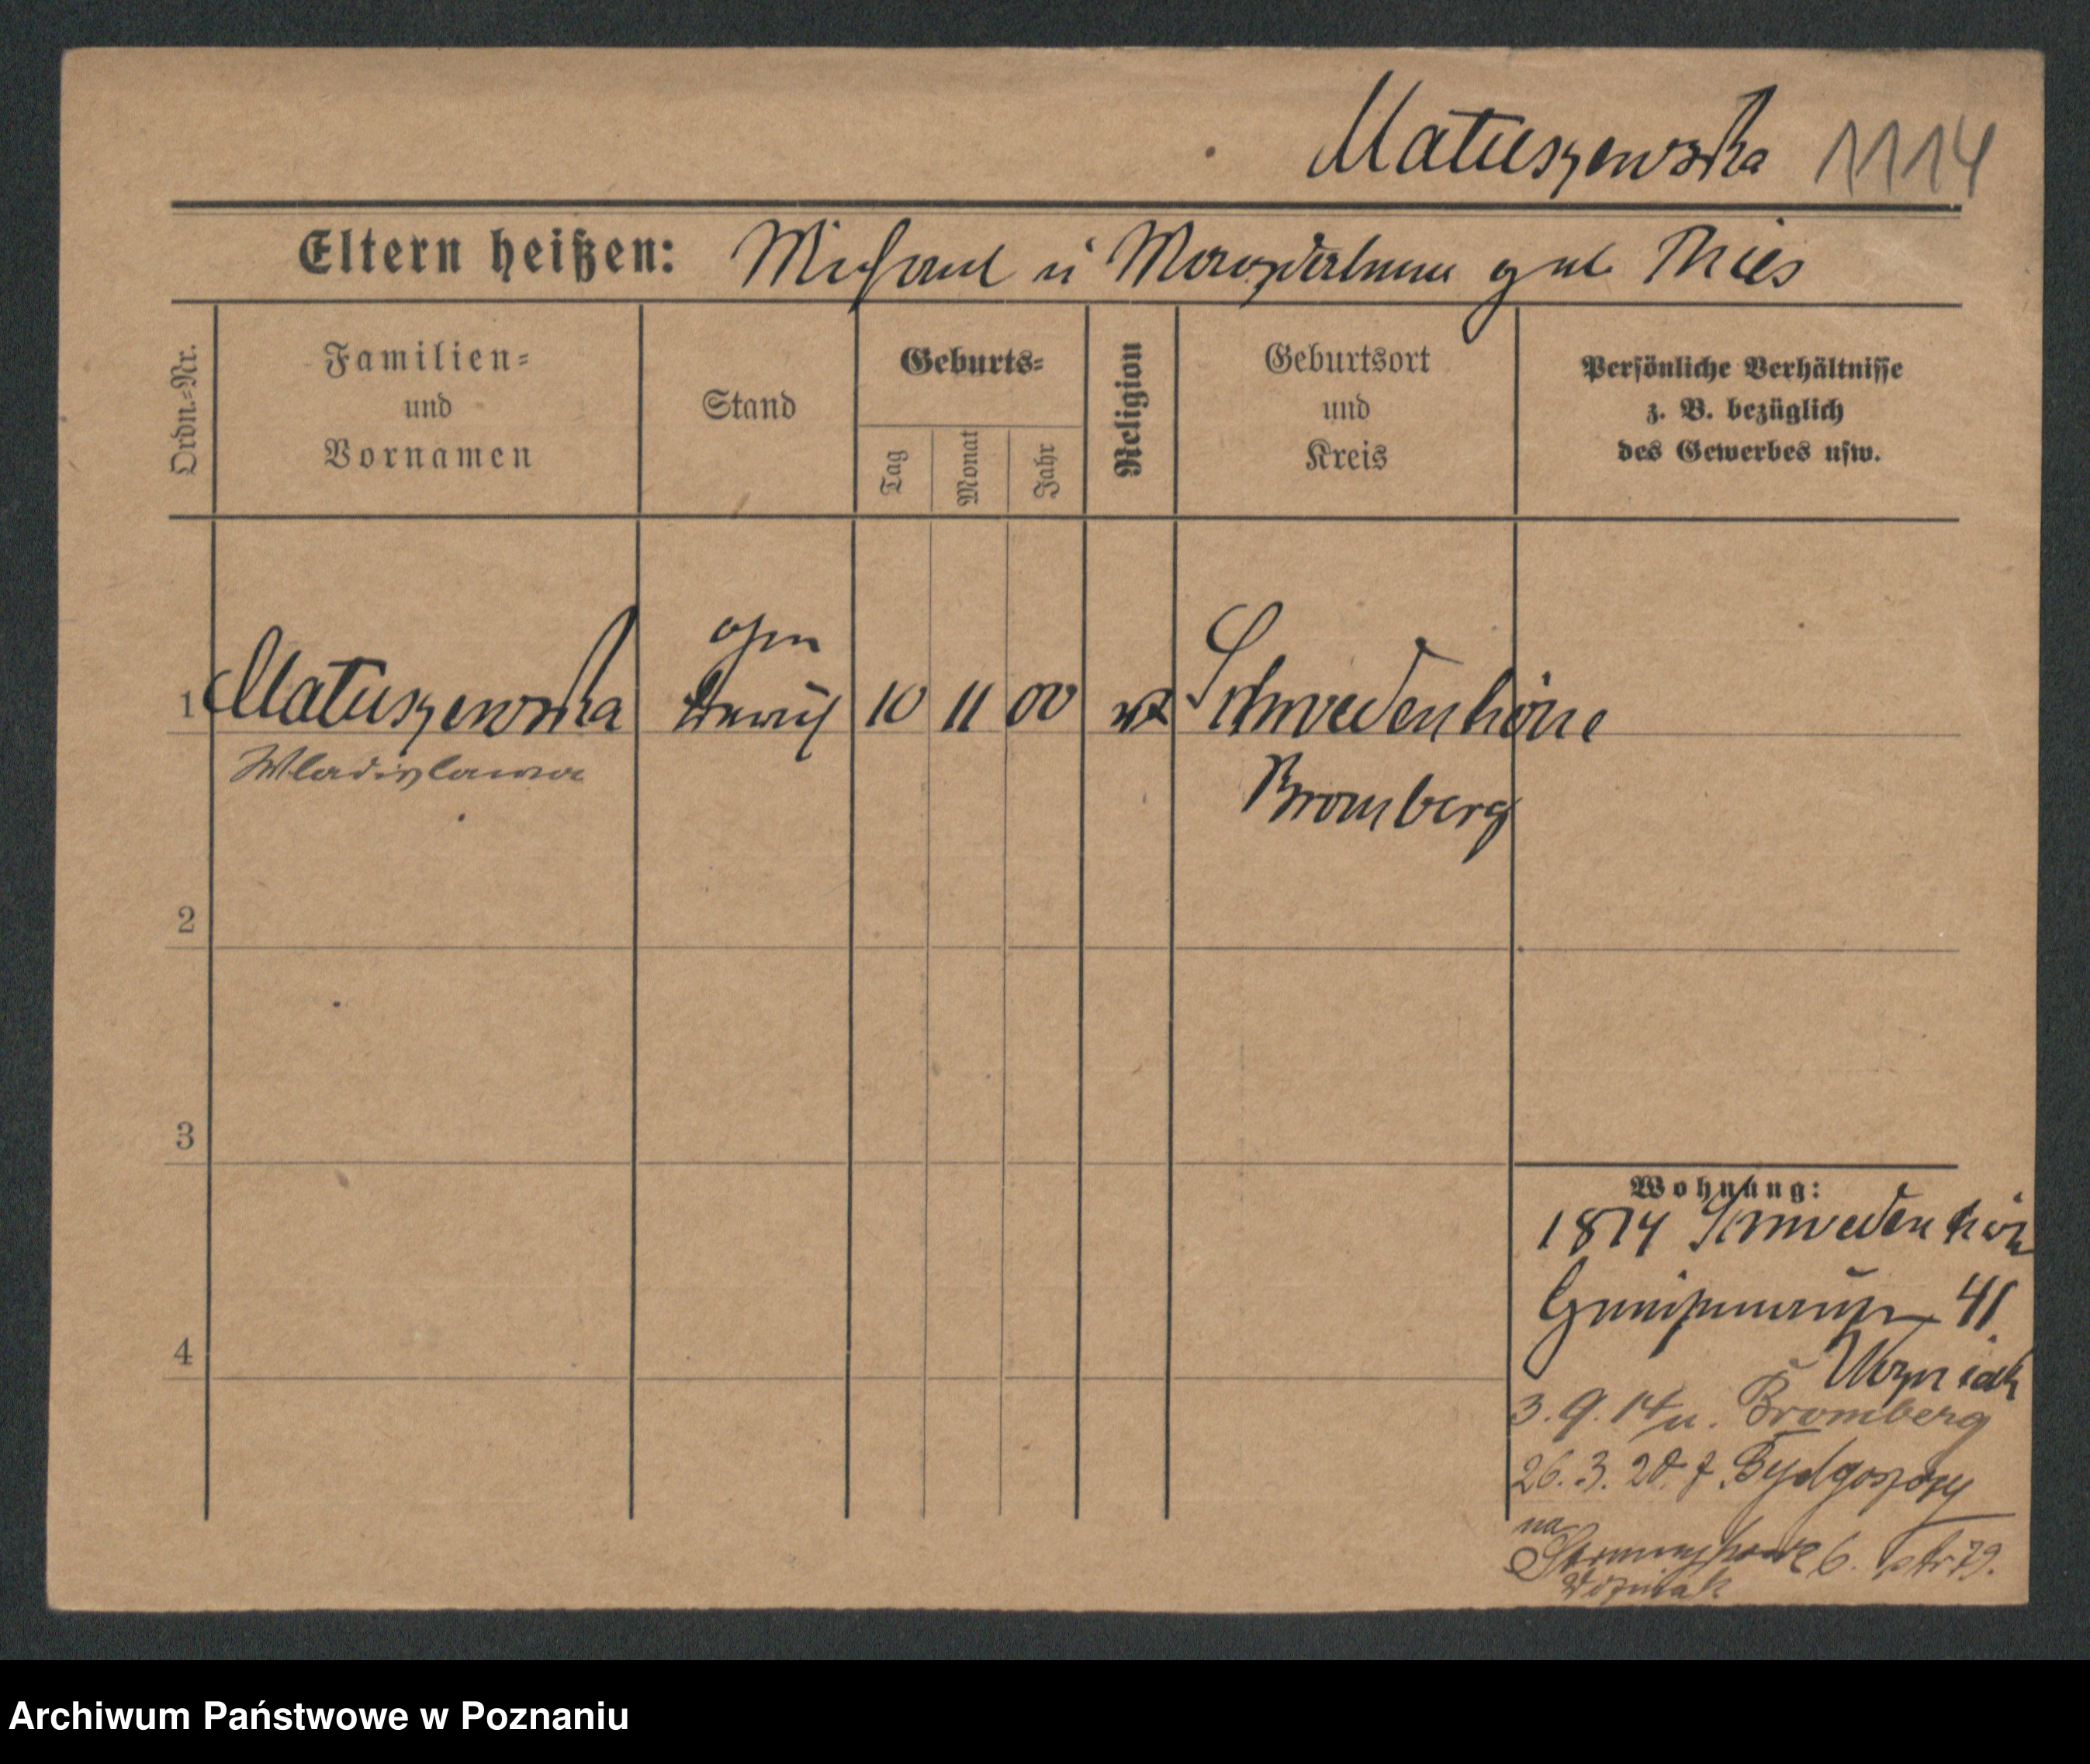 Matuszewska 1114
Eltern heißen: Michael u Magdalena geb. Thies
Ordn.-Nr.
Familien-
und
Vornamen
Stand
Geburts-
Tag
Monat
Jahr
Religion
Geburtsort
und
Kreis
Persönliche Verhältnisse
z. B. bezüglich
des Gewerbes usw.
ohn
1 Matuszewska 10 11 00 Schwedenhöhe
Wladislawa
Bromberg
2
3
4
Wohnung:
Schwedenhöh
41
Wozniak
3. 9. 14 Bromberg
26. 3. 20. Bydgoszczy
na
6. ptr 79.
Wozniak
Archiwum Państwowe w Poznaniu